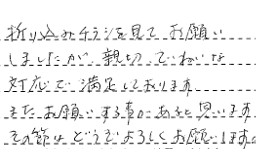 折り込みチラシを見てお願い
しましたが、親切でていねいな
対応で満足しております
またお願いする事があると思います
その節はどうぞよろしくお願いします。